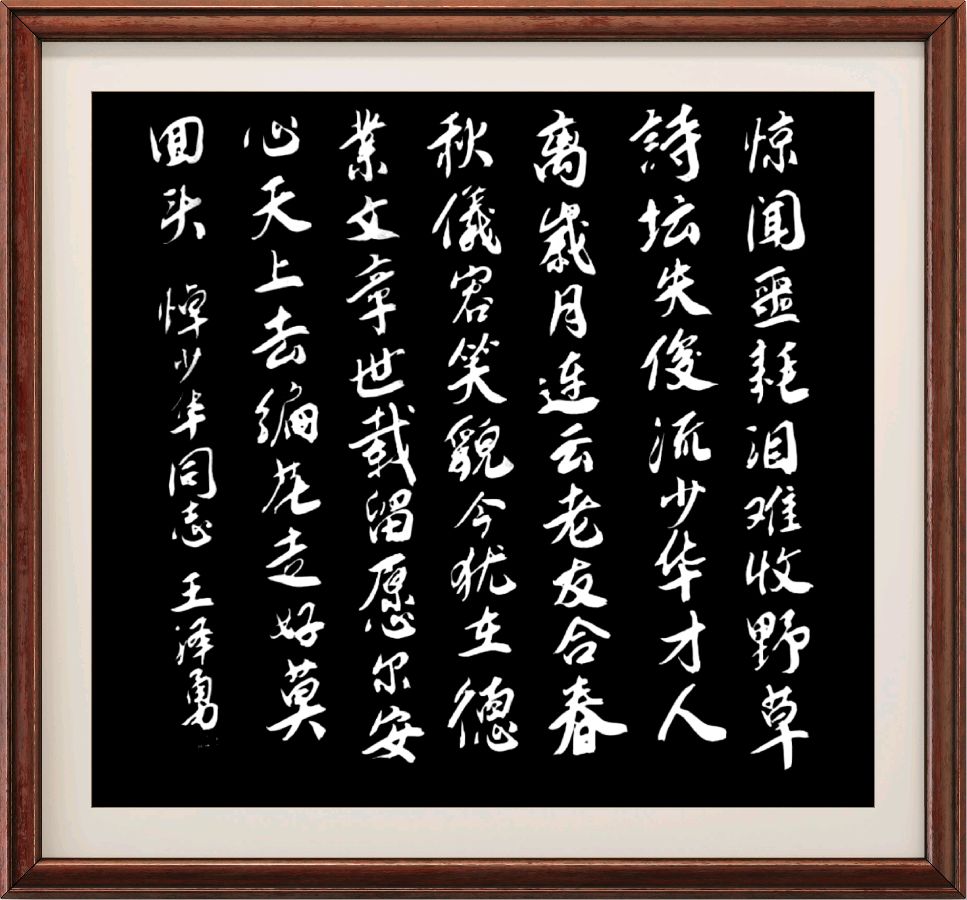 惊闻噩耗泪难收野草
詩坛失俊流少华才人
离嵗月连云老友合春
秋儀容笑貌今犹在德
業文章世載留愿尔安
心天上去编花走好莫
回头 悼少华同志 王泽勇